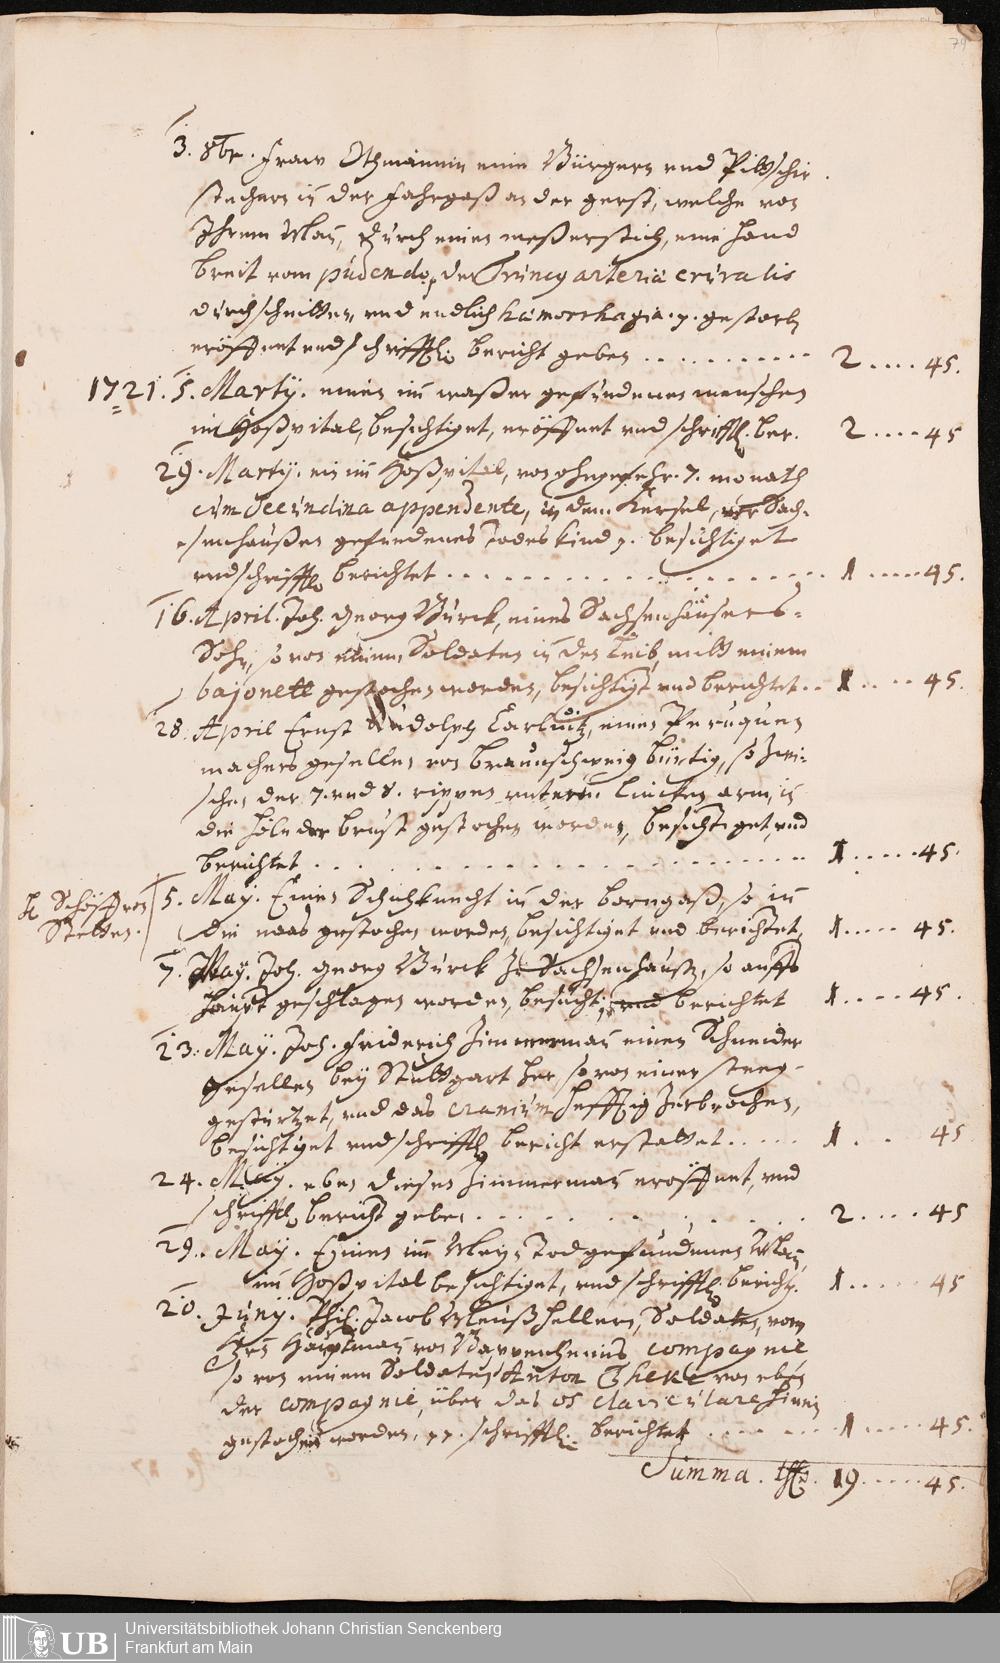 79
3. 8br. Fraw Othmännin eine Bürgers und Pittschir
stechers in der Fahrgaß an der gerst, welche von
Ihrem Man, durch einen meßerstich, eine Hand
breit vom pudendo, der Truncq arteria cruralis
durchschnitten, und endlich hämorrhagia. p. gestorben
eröffnet und schrifftl. bericht geben ........... 2 .... 45.
1721. 5. Martij. einen im waßer gefundenen menschen
im Hoßpital, besichtiget, eröffnet und schrifftl. ber. 2 .... 45
29. Martij. ein im Hoßpital, von ohngefehr. 7. monath
cum secundina appendente, in dem Kersel, Sach-
senhaußen gefundenes Todes kind p. besichtiget
und schrifftl. berichtet .................. 1 ..... 45.
16. April. Joh. Georg Burck, eines Sachsenhäusers-
Sohn, so von einem Soldaten in den Leib, mitt einem
bajonett gestochen worden, besichtigt und berichtet .. 1 .... 45.
28. April Ernst Rudolph Carluitz, einen Peruquen
machers gesellen von Braunschweig bürtig, so zwi-
schen der 7. und 8. rippen unterm lincken arm, in
die höle der brust gestochen worden, besichtiget, und
berichtet .................. 1 ..... 45.
H Schöff von
Stetten.
5. May. Einen Schuhknecht in der borngaß, so in
die naas gestochen worden, besichtiget und berichtet, 1 ..... 45.
7. May. Joh. Georg Burck zu Sachsenhaußen, so auffs
Haupt geschlagen worden, besichtiget und berichtet 1 ..... 45.
23. May. Joh. Friderich Zimmerman einen Schneider
gesellen bey Stuttgart her, so von einer steeg-
gestürtzet, und das cranium hefftig zerbrochen,
besichtiget und schrifftl. bericht erstattet ..... 1 ... 45
24. May. eben diesen Zimmerman eröffnet, und
schrifftl. bericht geben ........... 2 .... 45
29. May. Einen im Mayn Todgefundenen Man,
im Hoßpital besichtiget, und schrifftl. bericht. 1 ..... 45
20. Junij. Phil. Jacob Meußheller, Soldaten, vom
Hrn Hauptman von Pappenheims compagnie
so von einem Soldaten Anton Thekle von eben
der compagnie, über das os claviculare hinein
gestochen worden, pp. schrifftl. berichtet ....... 1 .... 45.
Summa. thlr. 19 ..... 45.
UB
Universitätsbibliothek Johann Christian Senckenberg
Frankfurt am Main